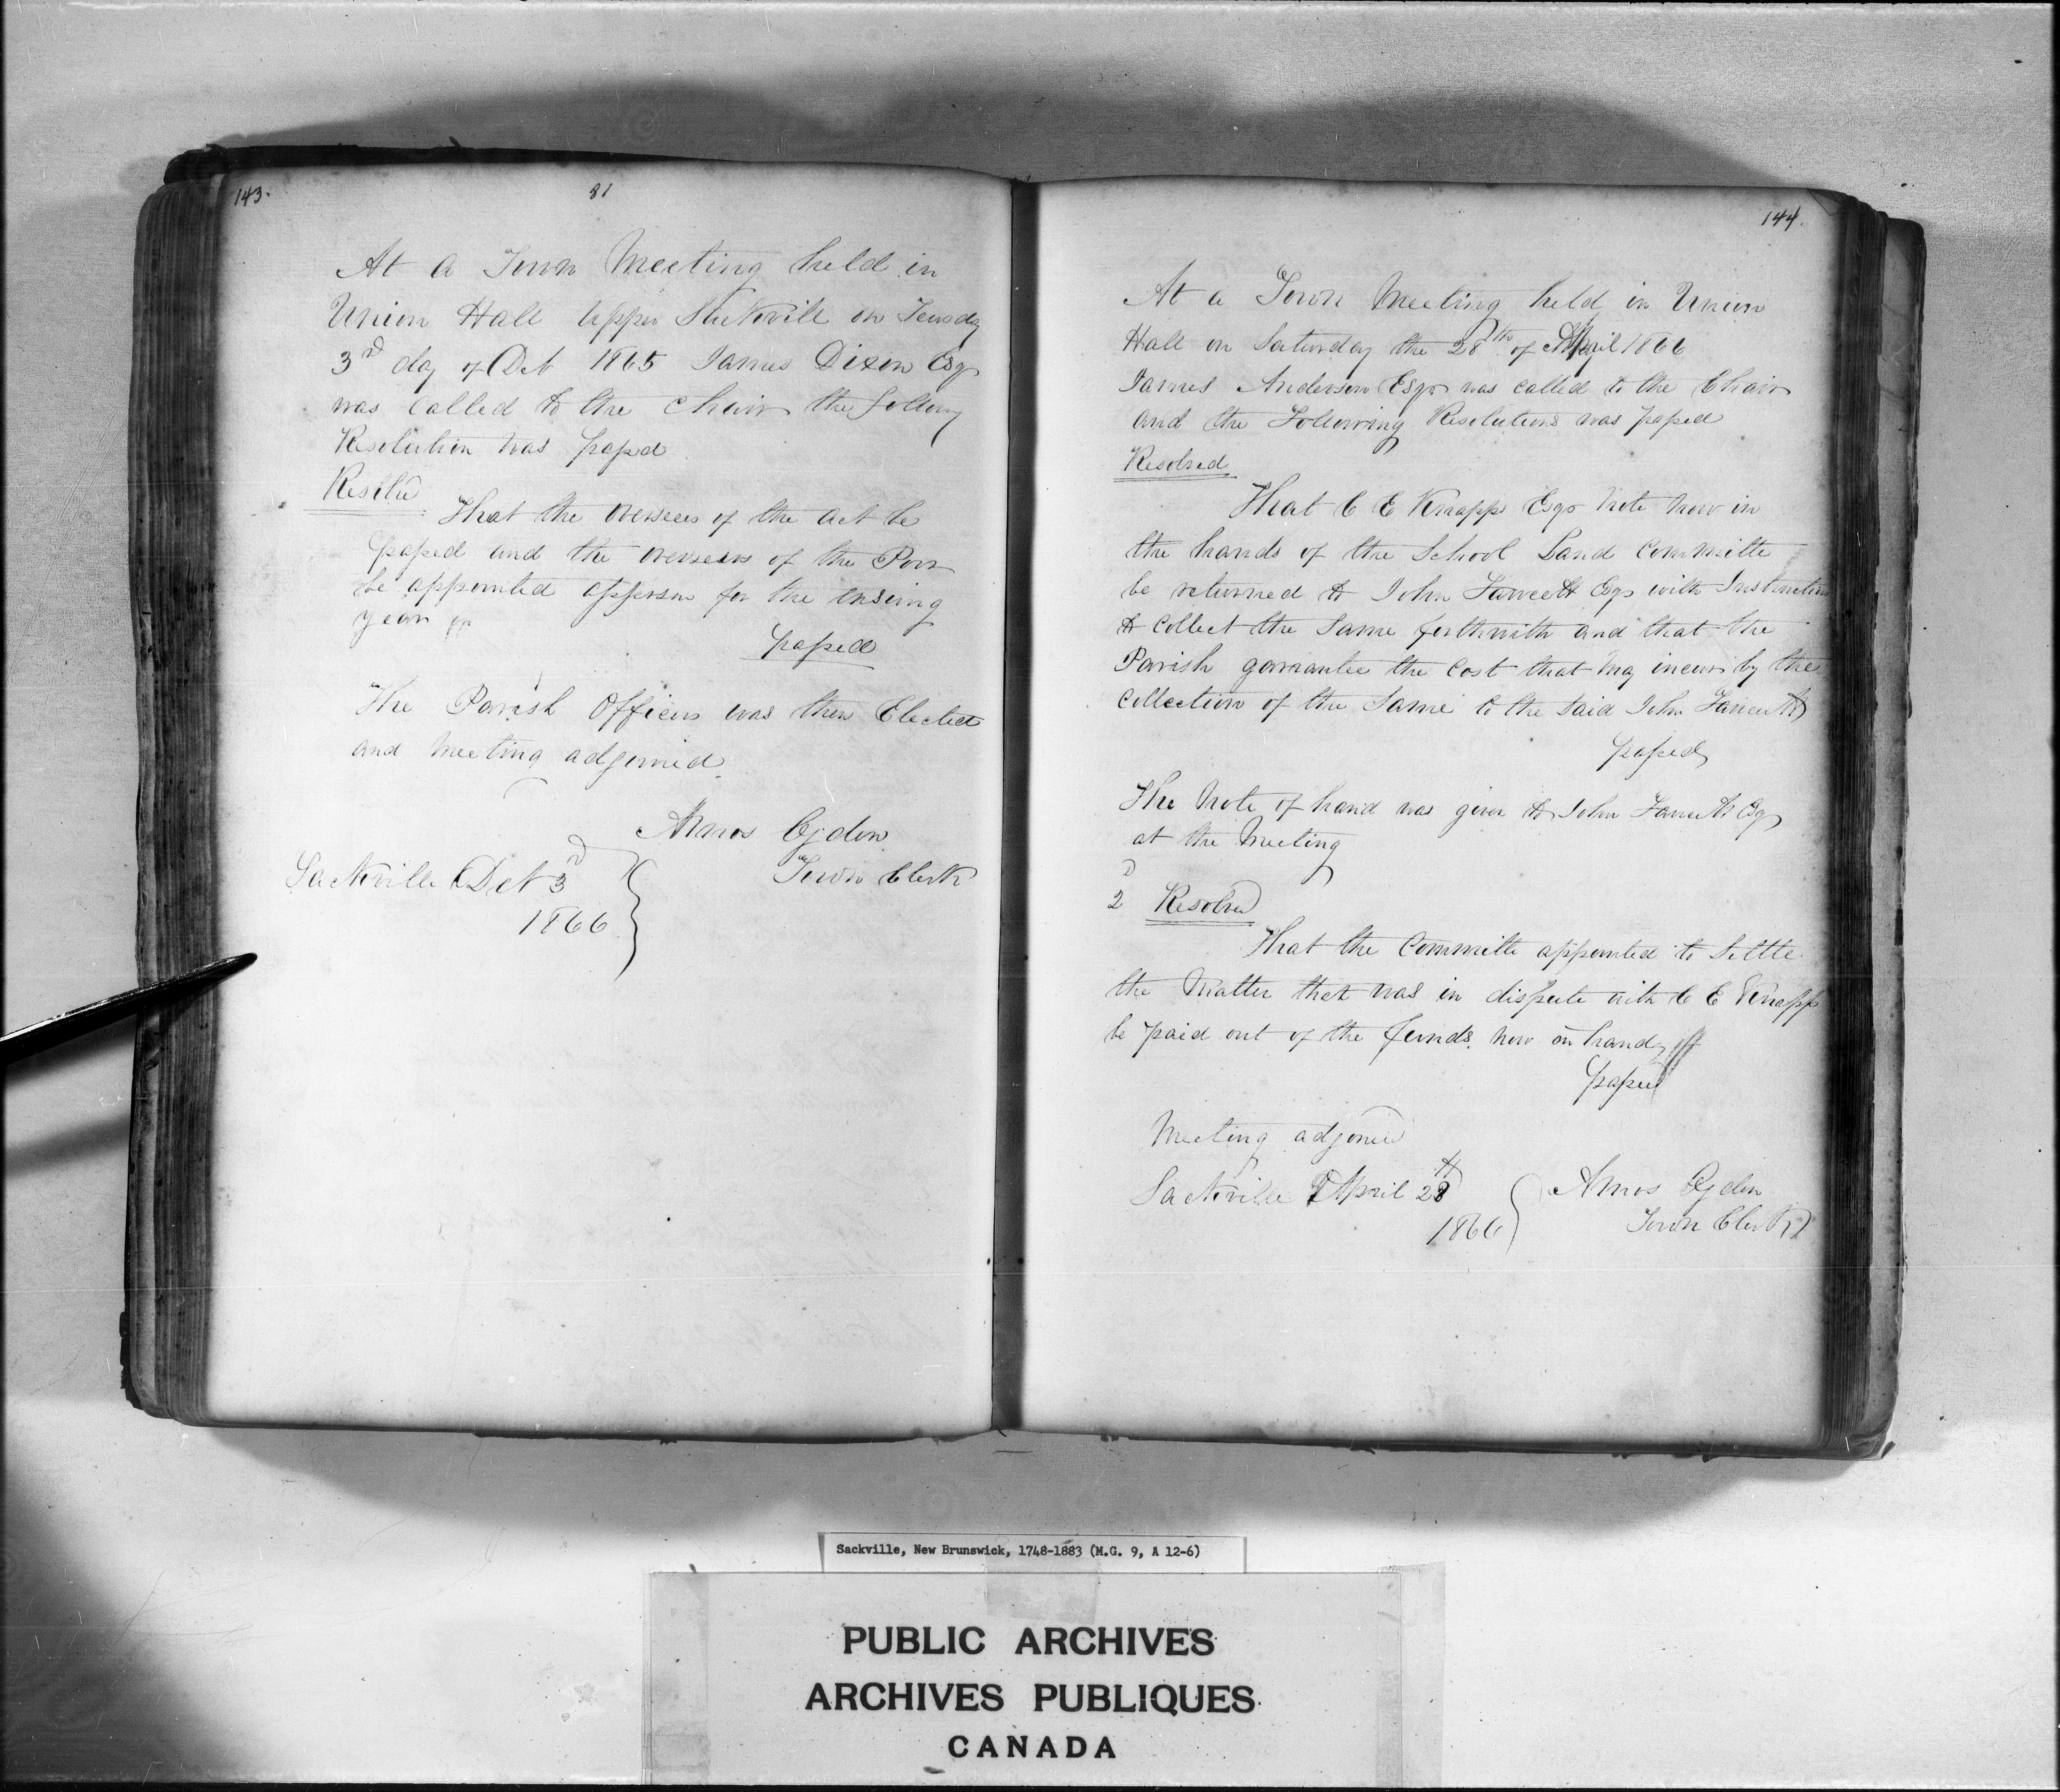 143.
81
At a Town Meeting held in
Union Hall Upper Sackvill on Teusday
3rd day of Oct 1865 James Dixon Esqr
was Called to the Chair the follong
Resolution was passd
That the overseers of the act be
passed and the overseers of the Poor
be appointed assessor for the ensuing
year
passed
The Parish Officers was then Elected
and Meeting adjourned
Amos Ogden
Town Clerk
Sackville Oct 3rd
1866
144.
At a Town Meeting held in Union
Hall on Saturday the 28th of April 1866
James Anderson Esqr was called to the Chair
and the Following Resolutions was passed
Resolved
That C E Knapp Esqr Note Now in
the hands of the School Land Committe
be returned to John Fawcett Esqr with Instruction
to Collect the Same forthwith and that the
Parish garrantee the Cost that may incur by the
Collection of the Same to the Said John Fawcett
passed
The Note of hand was given to John Fawcett Esqr
at the Meeting
2d Resolved
That the Committe appointed to Settle
the Matter that was in dispute with C E Knapp
be paid out of the funds now on hand
passed
Meeting adjoned
Sackville April 28th
1866
Amos Ogden
Town Clerk
Sackville, New Brunswick, 1748-1883 (M.G. 9, A 12-6)
PUBLIC ARCHIVES
ARCHIVES PUBLIQUES
CANADA